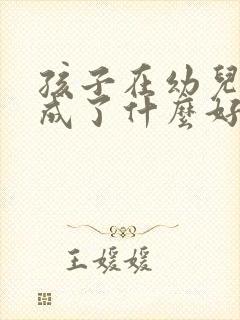 孩子在幼兒
成了什麼好
王媛媛